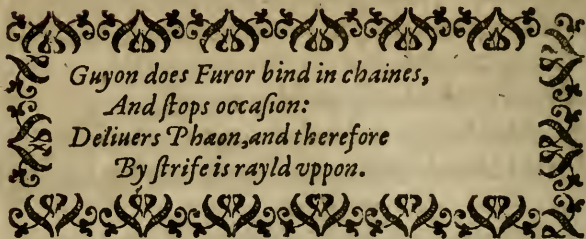 Guyon does Furor bind in chaines,
And ſtops occaſion:
Deliuers Phaon, and therefore
By ſtrife is rayld vppon.